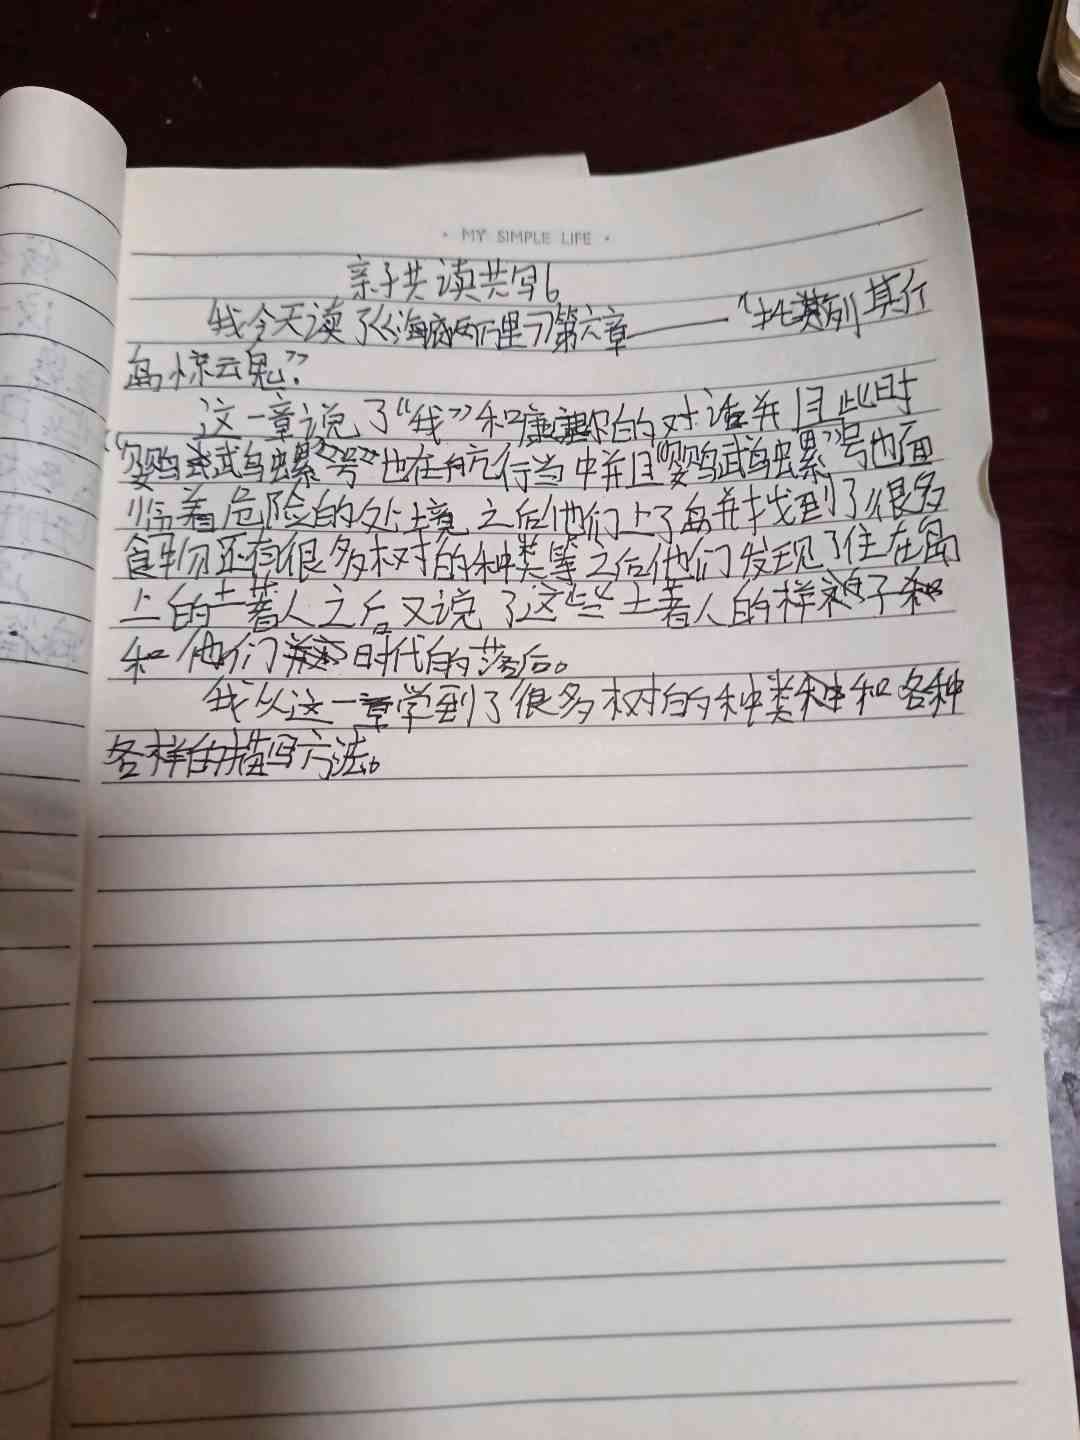 · MY SIMPLE LIFE ·
亲子共读共写6
我今天读了《海底两万里》第六章——“托莱列斯行
岛惊云鬼”
这一章说了“我”和康塞尔的对话并且此时
“鹦鹉螺”号也在航行当中并且“鹦鹉螺”号也面
临着危险的处境之后他们上了岛并找到了很多
食物还有很多树的种类等之后他们发现了住在岛
上的土著人之后又说了这些土著人的样子和
和他们时代的落后。
我从这一章学到了很多树的种类和各种
各样的描写方法。